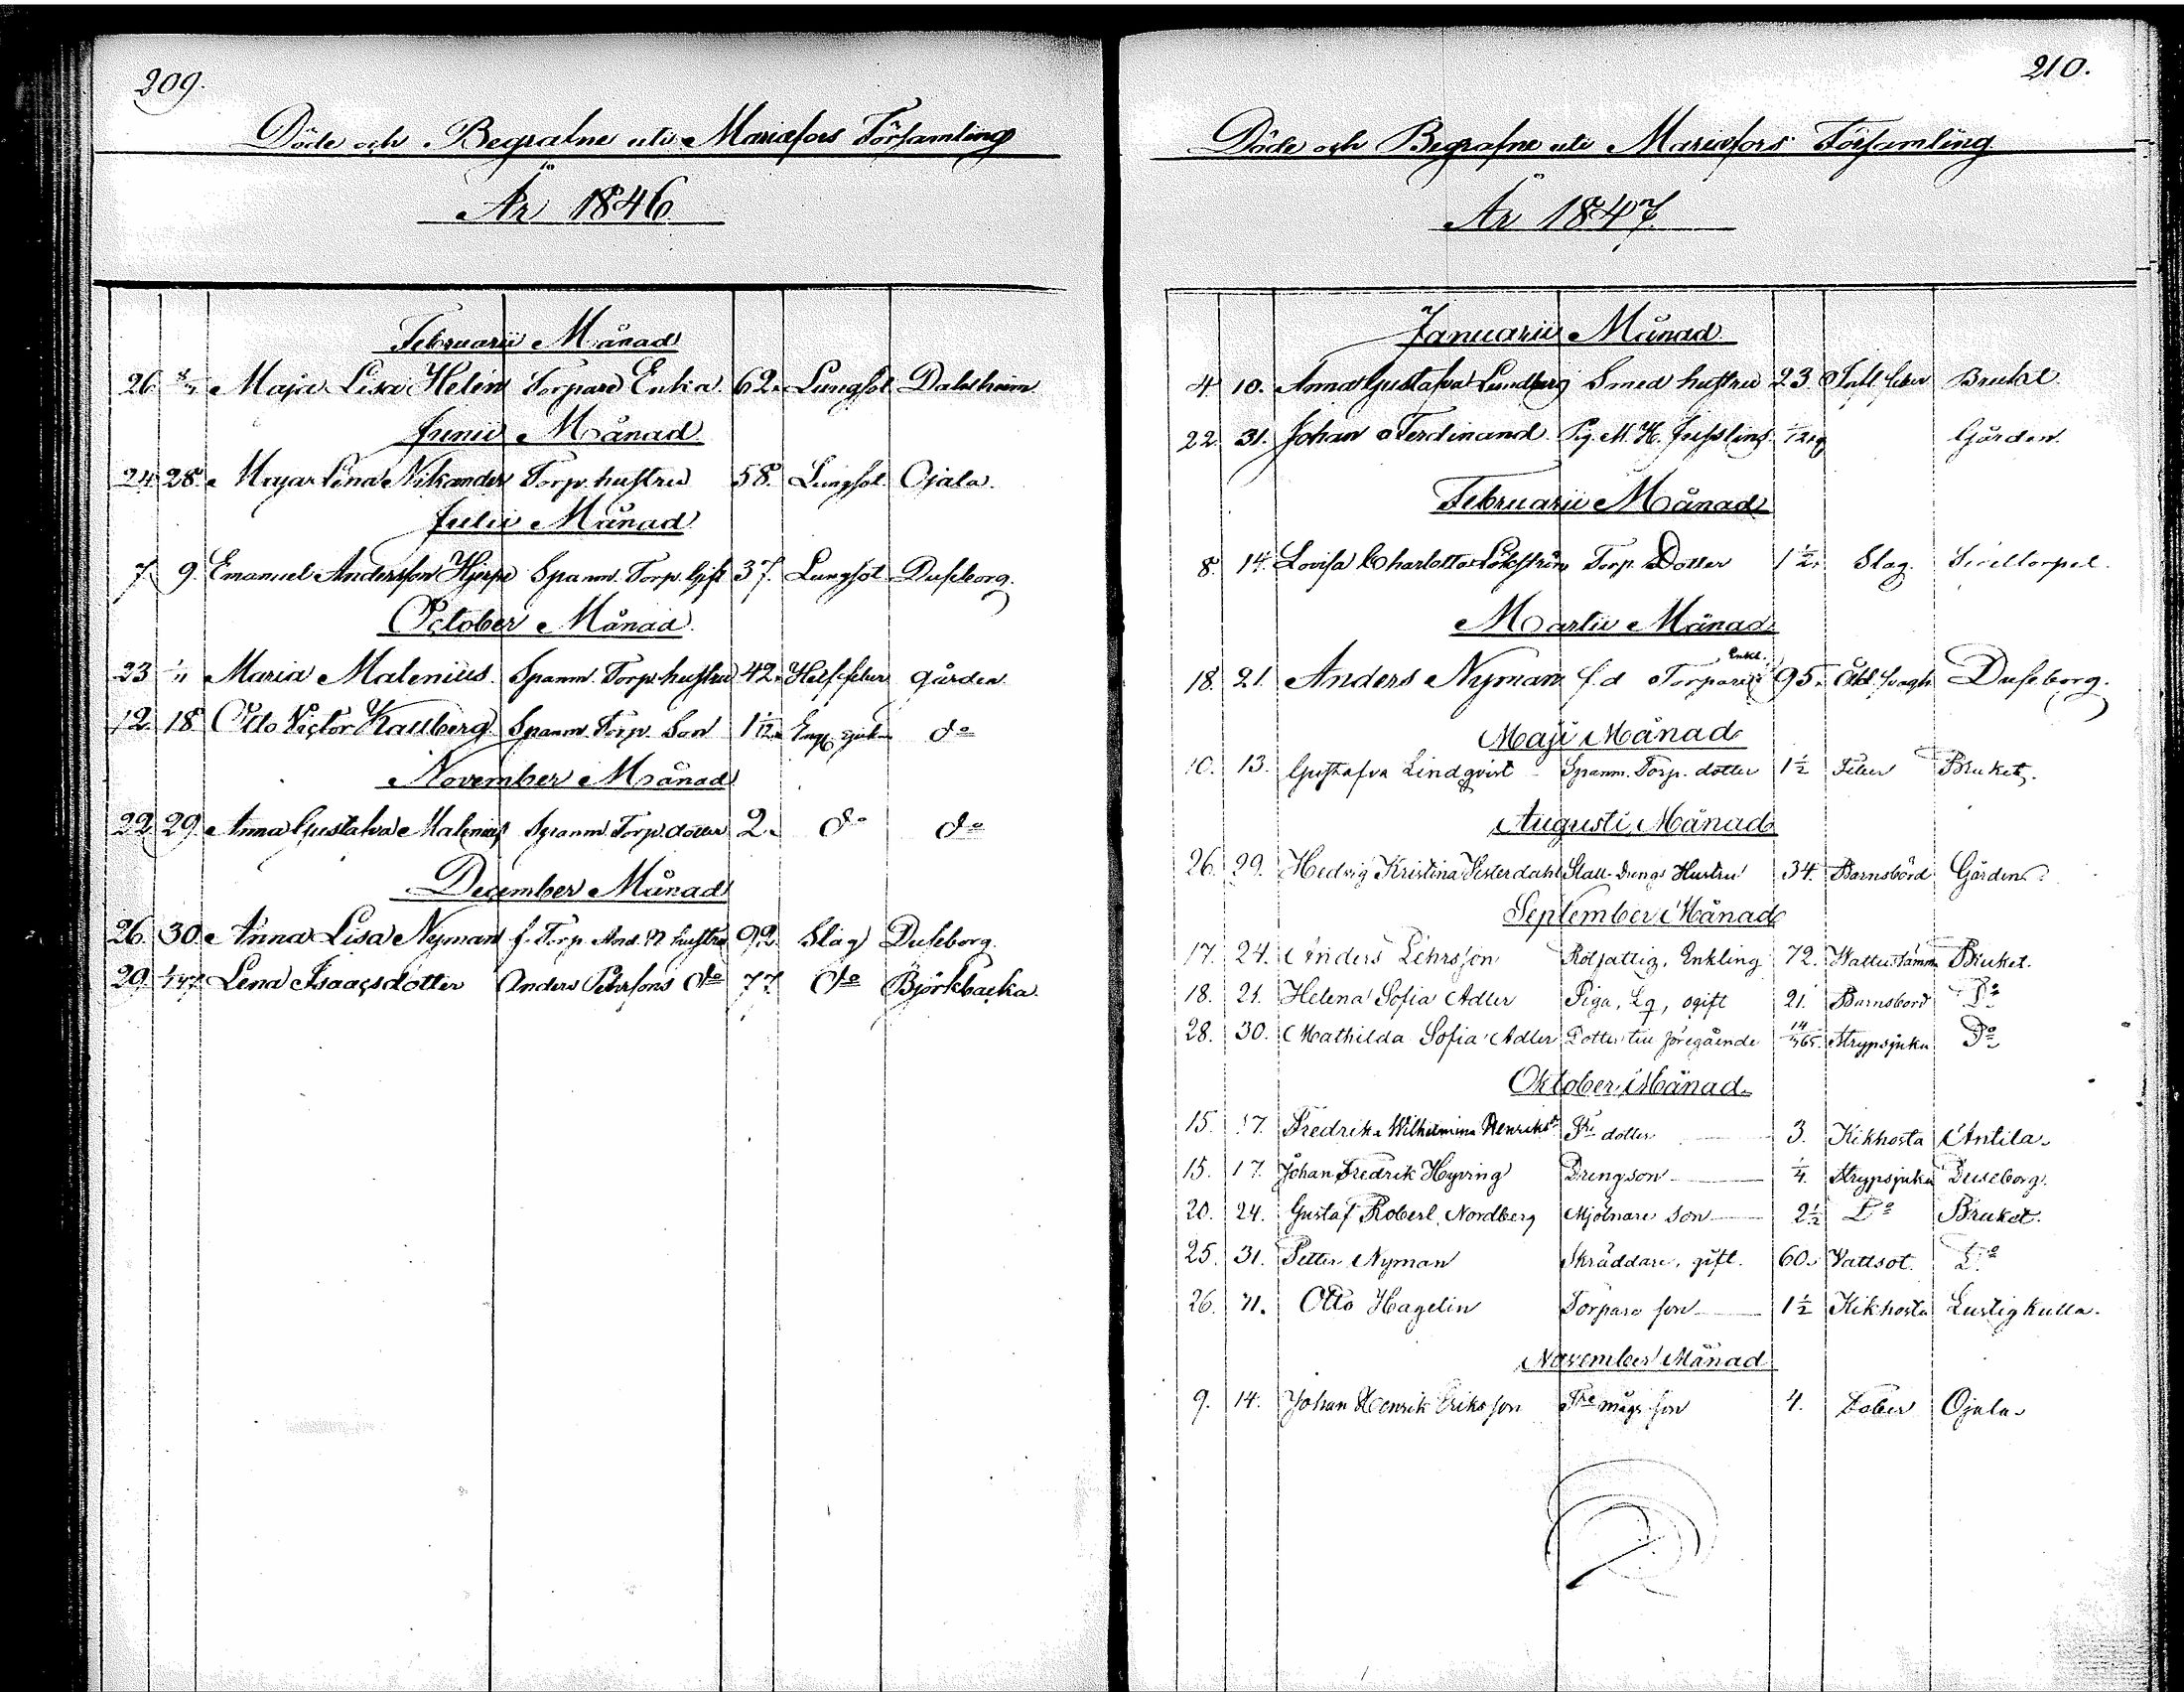 209.
Döde och Begrafne uti Mariæfors Församling
År 1846
Februarii Månad
26. Maja Lisa Helin Torpare Enka. 62. Lungsot Dalsheim
Junii Månad
24 28. Maja Lena Nikander Torp. hustru 58. Lungsot Ojala.
Julii Månad
7. 9. Emanuel Andersson Hjerpe Spanm. Torp. Gift 37. Lungsot Duseborg.
October Månad
23 1/11 Maria Malenius. Spanm. Torp. hustru 42. gården
12. 18 Otto Victor Kallberg Spanm. Torp. Son 1 1/12 do
November Månad
22 29. Anna Gustafva Malenius Spanm. Torp. dotter 2. do do
December Månad
26. 30. Anna Lisa Nyman f. Torp. And. N. hustru 92. Slag Duseborg.
29. 1/1 47. Lena Isaacsdotter Anders Pehrsons do 77. do Björkbacka.
210.
Döde och Begrafne uti Mariæfors Församling
År 1847.
Januarii Månad
4. 10. Anna Gustafva Lundberg Smed hustru 23. feber Bruket
22. 31. Johan Ferdinand Pig. M. H. Gården.
Februarii Månad
8. 14. Lovisa Charlotta Torp. Dotter 1 1/2. Slag.
Martii Månad
18. 21. Anders Nyman f.d Torpare Enkl. 95. Åld. svagh. Duseborg.
Maji Månad
10. 13. Gustafva Lindqvist Spanm. Torp. dotter 1 1/2 Feber Bruket.
Augusti Månad
26. 29. Hedvig Kristina Vesterdahl Stall-Drengs Hustru 34. Barnsbörd Gården.
September Månad
17. 24. Anders Pehrsson Rotfattig, Enkling 72. Bruket.
18. 21. Helena Sofia Adler Piga, Lq, ogift 21. Barnsbörd Do
28. 30. Mathilda Sofia Adler Dotter till föregående 14/365. Strypsjuka Do
Oktober Månad
15. 17. Fredrika Wilhelmina Henriksd. Tre dotter 3. Kikhosta Antila.
15. 17. Johan Fredrik Hyving Drengson 1/4. Strypsjuka Duseborg.
20. 24. Gustaf Robert Nordberg Mjölnare Son 2 1/2 Do Bruket.
25. 31. Petter Nyman Skräddare, gift. 60. Vattsot. Do
26. 31. Otto Hagelin Torpare son 1 1/2 Kikhosta Lustigkulla.
November Månad
9. 14. Johan Henrik Eriksson Tre mågs son 4. Feber Ojala.